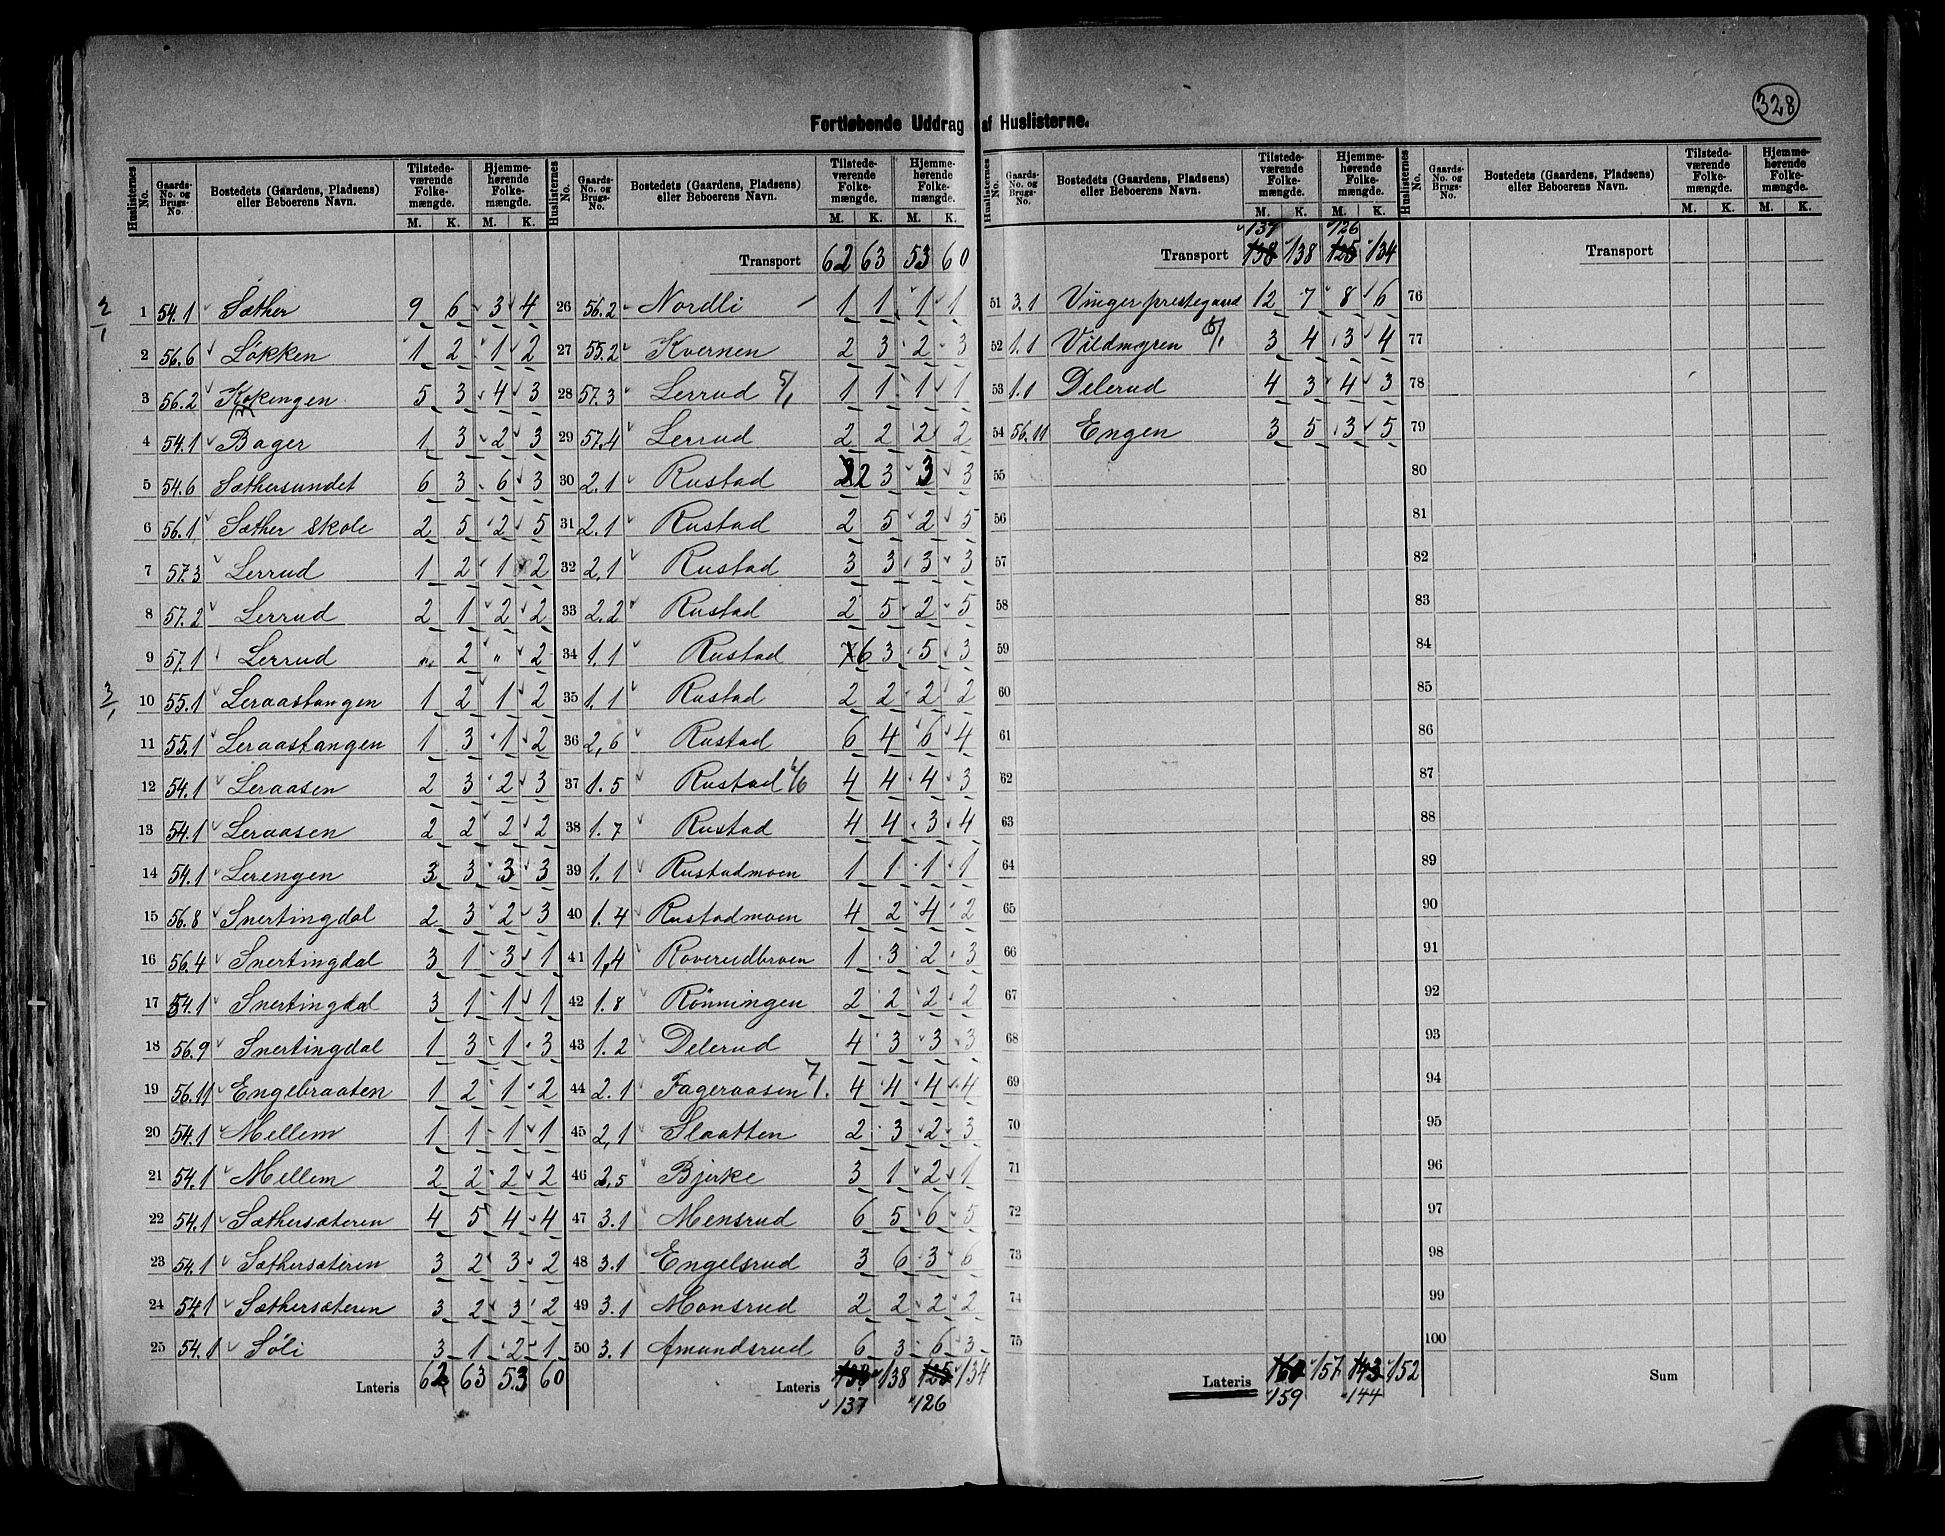 328
Fortløbende Uddrag af Huslisterne.
Huslisternes No. | Gaards-No. og Brugs-No. | Bostedets (Gaardens, Pladsens) eller Beboerens Navn. | Tilstedeværende Folkemængde. M. K. | Hjemmehørende Folkemængde. M. K.
2/1
1 54.1 Sæther 9 6 3 4
2 56.6 Løkken 1 2 1 2
3 56.2 Kokengen 5 3 4 3
4 54.1 Bager 1 3 2 3
5 54.6 Sæthersundet 6 3 6 3
6 56.1 Sæther skole 2 5 2 5
7 57.3 Lerrud 1 2 1 2
8 57.2 Lerrud 2 1 2 2
9 57.1 Lerrud " 2 " 2
3/1
10 55.1 Leraastangen 1 2 1 2
11 55.1 Leraastangen 1 3 1 2
12 54.1 Leraasen 2 3 2 3
13 54.1 Leraasen 2 2 2 2
14 54.1 Lerengen 3 3 3 3
15 56.8 Snertingdal 2 3 2 3
16 56.4 Snertingdal 3 1 3 1
17 54.1 Snertingdal 3 1 1 1
18 56.9 Snertingdal 1 3 1 3
19 56.11 Engebraaten 1 2 1 2
20 54.1 Mellem 1 1 1 1
21 54.1 Mellem 2 2 2 2
22 54.1 Sæthersæteren 4 5 4 4
23 54.1 Sæthersæteren 3 2 3 2
24 54.1 Sæthersæteren 3 2 3 2
25 54.1 Søli 3 1 2 1
Lateris 62 63 53 60
Huslisternes No. | Gaards-No. og Brugs-No. | Bostedets (Gaardens, Pladsens) eller Beboerens Navn. | Tilstedeværende Folkemængde. M. K. | Hjemmehørende Folkemængde. M. K.
Transport 62 63 53 60
26 56.2 Nordli 1 1 1 1
27 55.2 Kvernen 2 3 2 3
28 57.3 Lerrud 5/1 1 1 1 1
29 57.4 Lerrud 2 2 2 2
30 2.1 Rustad 2 3 3 3
31 2.1 Rustad 2 5 2 5
32 2.1 Rustad 3 3 3 3
33 2.2 Rustad 2 5 2 5
34 1.1 Rustad 6 3 5 3
35 1.1 Rustad 2 2 2 2
36 2,6 Rustad 6 4 6 4
37 1.5 Rustad 4 4 4 3
38 1.7 Rustad 4 4 3 4
39 1.1 Rustadmoen 1 1 1 1
40 1.4 Rustadmoen 4 2 4 2
41 1,4 Roverudbroen 1 3 2 3
42 1.8 Rönningen 2 2 2 2
43 1.2 Delerud 4 3 3 3
44 2.1 Fageraasen 7/1. 4 4 4 4
45 2,1 Slaatten 2 3 2 3
46 2,5 Bjerke 3 1 2 1
47 3.1 Mensrud 6 5 6 5
48 3.1 Engelsrud 3 6 3 6
49 3.1 Monsrud 2 2 2 2
50 3.1 Amundsrud 6 3 6 3
Lateris 138 138 125 134
137 126
Huslisternes No. | Gaards-No. og Brugs-No. | Bostedets (Gaardens, Pladsens) eller Beboerens Navn. | Tilstedeværende Folkemængde. M. K. | Hjemmehørende Folkemængde. M. K.
137 126
Transport 138 138 125 134
51 3.1 Vinger prestegaard 12 7 8 6
52 1.1 Vildmyren 6/1 3 4 3 4
53 1.1 Delerud 4 3 4 3
54 56.11 Engen 3 5 3 5
55
56
57
58
59
60
61
62
63
64
65
66
67
68
69
70
71
72
73
74
75
Lateris 160 157 143 152
159 144
Huslisternes No. | Gaards-No. og Brugs-No. | Bostedets (Gaardens, Pladsens) eller Beboerens Navn. | Tilstedeværende Folkemængde. M. K. | Hjemmehørende Folkemængde. M. K.
Transport
76
77
78
79
80
81
82
83
84
85
86
87
88
89
90
91
92
93
94
95
96
97
98
99
100
Sum